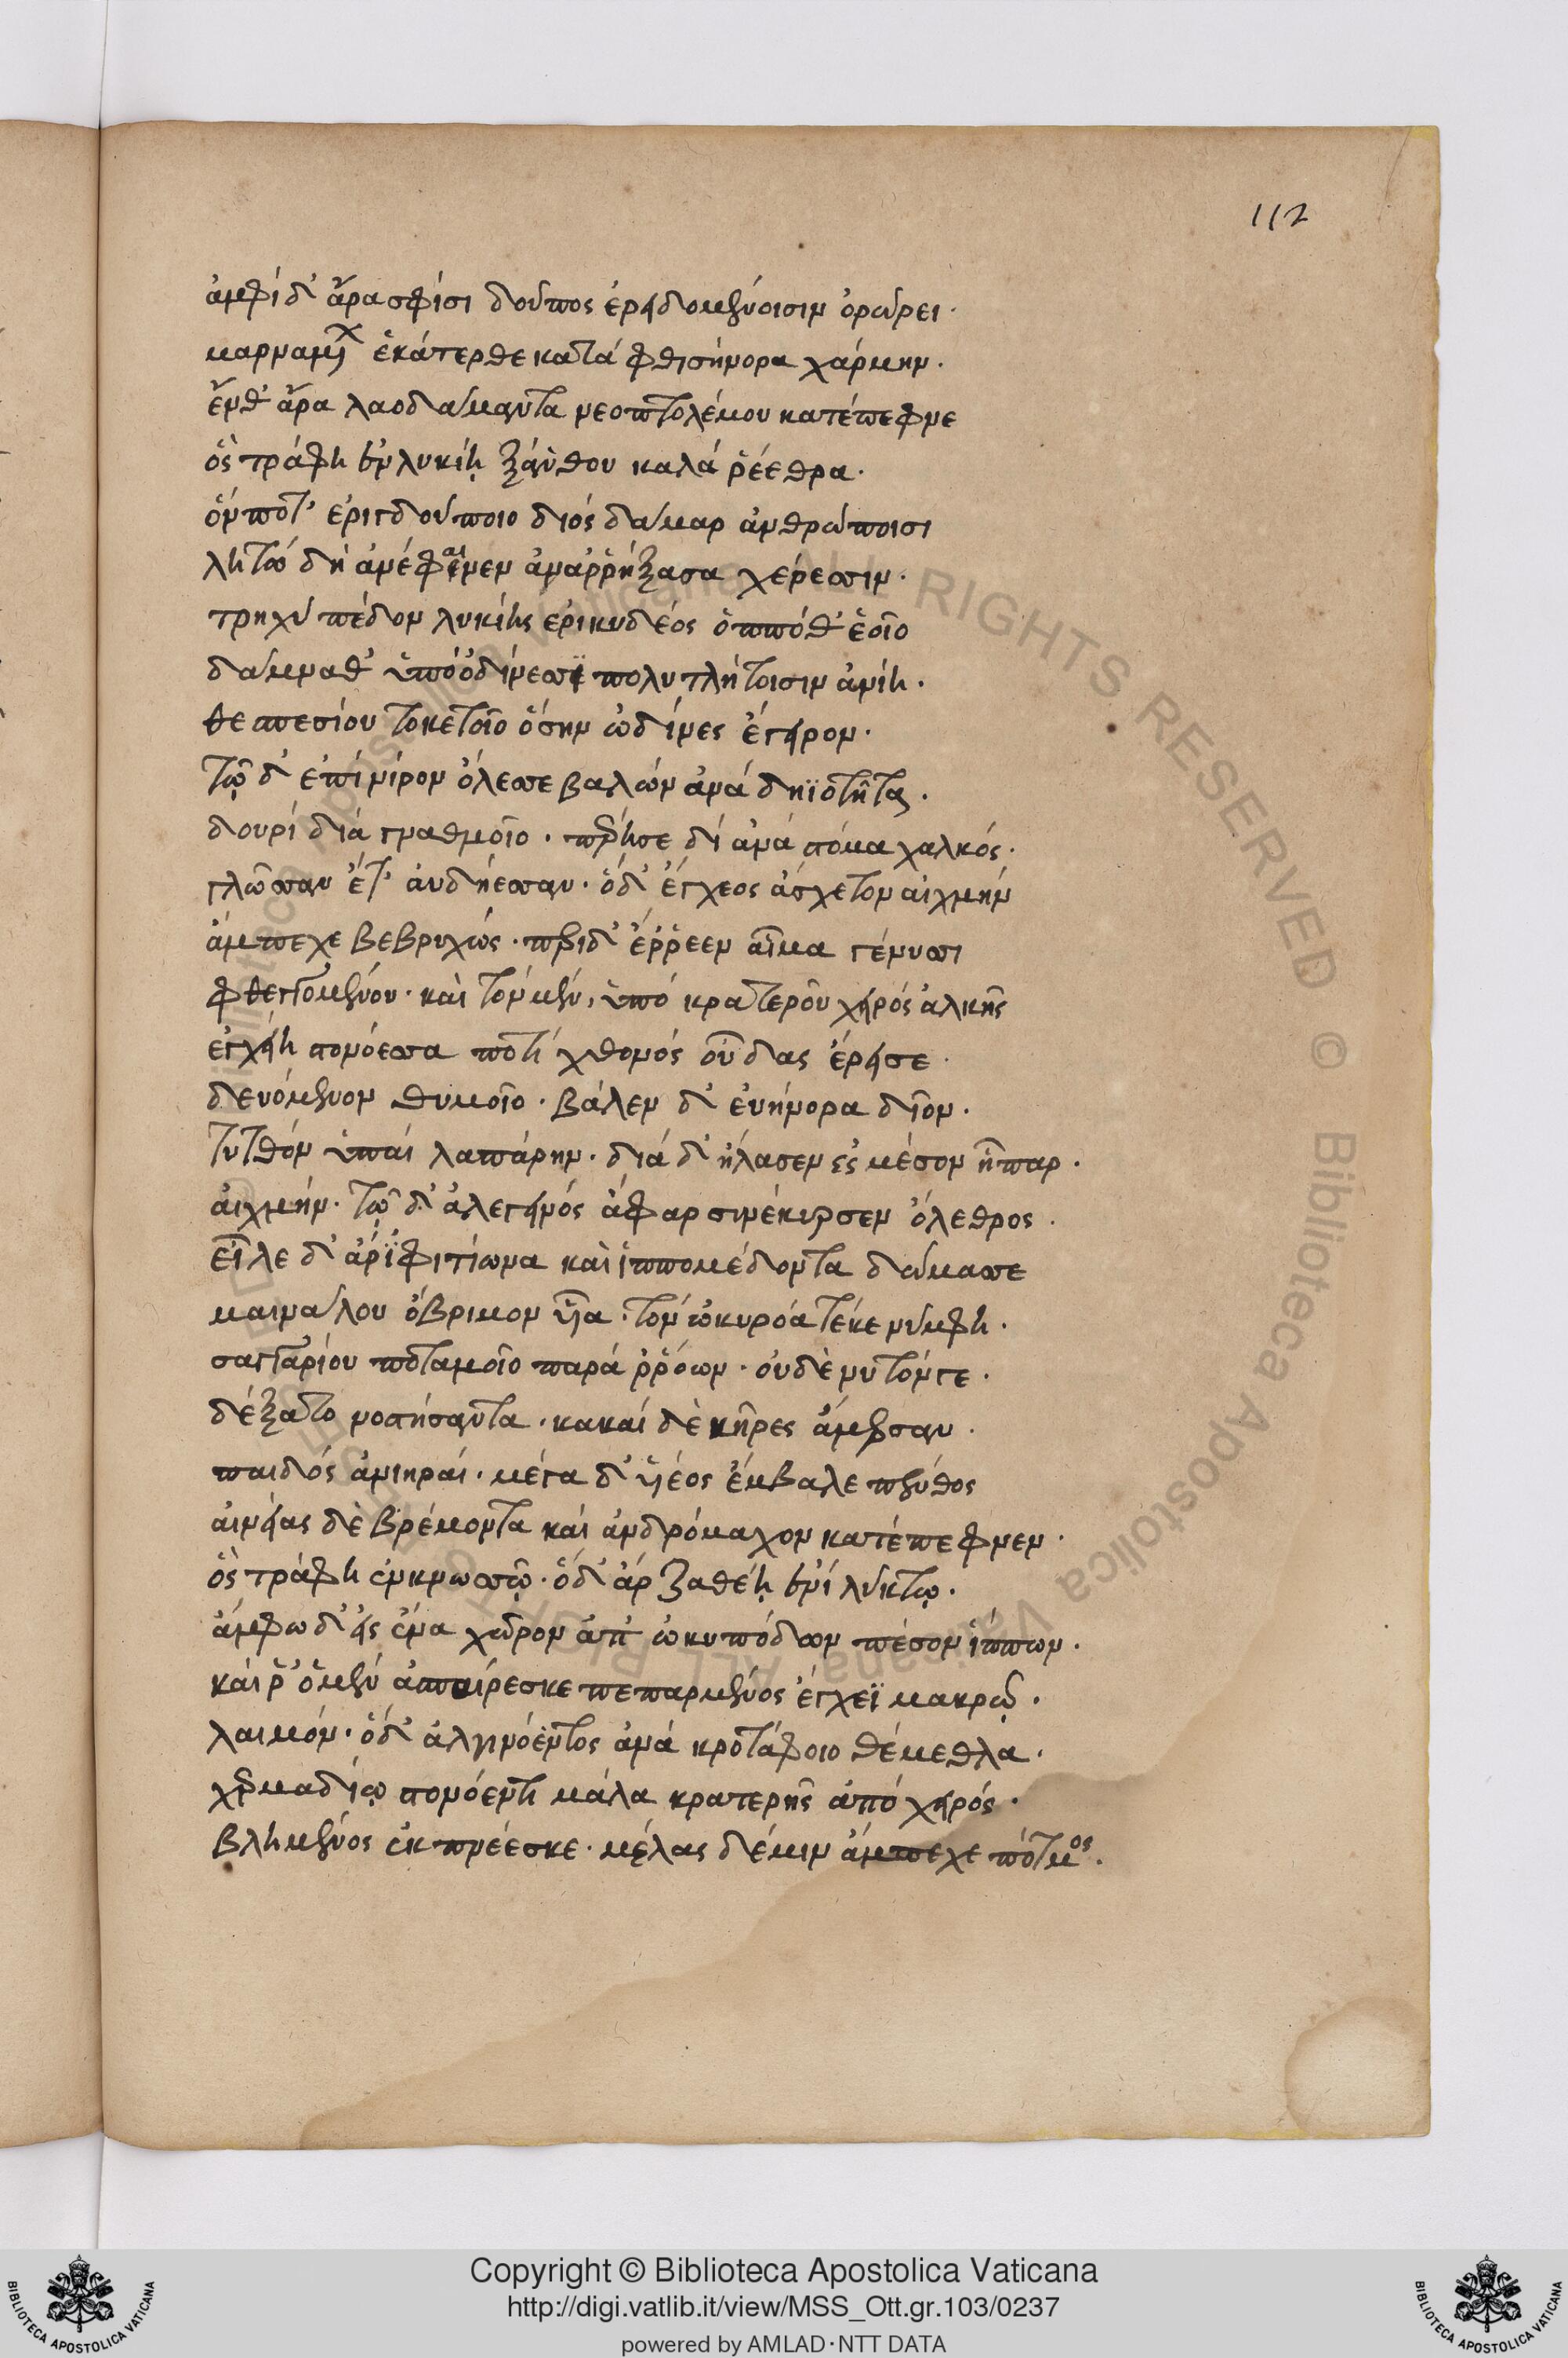 112
ἀμφὶ δ' ἄρα σφίσι δοῦπος ἐρειδομένοισιν ὀρώρει·
μαρναμένων ἑκάτερθε κατὰ φθισήνορα χάρμην.
ἔνθ' ἄρα λαοδάμαντα νεοπτολέμου κατέπεφνε
ὃς τράφη ἐν λυκίῃ ξάνθου καλὰ ῥέεθρα.
ὅν ποτ' ἐριγδούποιο διὸς δάμαρ ἀνθρώποισι
λητὼ δὴ ἀνέφαινεν ἀναρρήξασα χέρεσσιν.
τρηχὺ πέδον λυκίης ἐρικυδέος ὁππόθ' ἑοῖο
δάμναθ' ὑπὸ ὀδίνεσσι πολυτλήτοισιν ἀνίη.
θεσπεσίου τοκετοῖο ὅσην ὠδῖνες ἔγειρον.
τῷ δ' ἐπὶ νίρον ὄλεσσε βαλὼν ἀνὰ δηϊοτῆτα.
δουρὶ διὰ γναθμοῖο. πέρησε δὶ ἀνὰ στόμα χαλκός.
γλῶσσαν ἔτ' ἀνδήεσσαν. ὁ δ' ἔγχεος ἄσχετον αἰχμὴν
ἄμπεχε βεβρυχώς. περὶ δ' ἔρρεεν αἷμα γένυσσι
φθεγγομένου. καὶ τὸν μὲν, ὑπὸ κρατεροῦ χειρὸς ἀλκῆς
ἐγχείη στονόεσσα ποτὶ χθονὸς οὖδας ἔρεισε.
δευόμενον θυμοῖο. βάλεν δ' εὐήνορα δῖον.
τυτθὸν ὑπαὶ λαπάρην. διὰ δ' ἤλασεν ἐς μέσον ἧπαρ.
αἰχμήν. τῷ δ' ἀλεγεινὸς ἄφαρ συνέκυρσεν ὄλεθρος.
εἷλε δ' ἄρ' ἰφιτίωνα καὶ ἱππομέδοντα δάμασσε
μαινάλου ὄβριμον υἷα. τὸν ὠκυρόα τέκε νύμφη.
σαγγαρίου ποταμοῖο παρὰ ῥρόων. οὐδὲ νυ τόνγε.
δέξατο νοστήσαντα. κακαὶ δὲ κῆρες ἄμερσαν.
παιδὸς ἀνιηραί. μέγα δ' υἱέος ἔμβαλε πένθος
αἰνείας δὲ βρέμοντα καὶ ἀνδρόμαχον κατέπεφνεν.
ὃς τράφη ἐν κνωσσῷ. ὁ δ' ἄρ ζαθέῃ ἐνὶ λύκτῳ.
ἄμφω δ' εἰς ἕνα χῶρον ἀπ' ὠκυπόδων πέσον ἵππων.
καί ῥ' ὁ μὲν ἀσπαίρεσκε πεπαρμένος ἔγχεϊ μακρῷ.
λαιμόν. ὁ δ' ἀλγινόεντος ἀνὰ κροτάφοιο θέμεθλα.
χερμαδίῳ στονόεντι μάλα κρατερῆς ἀπὸ χειρός.
βλήμενος ἐκπνέεσκε. μέλας δέ μιν ἄμπεχε πότμος.
Copyright © Biblioteca Apostolica Vaticana
http://digi.vatlib.it/view/MSS_Ott.gr.103/0237
powered by AMLAD·NTT DATA